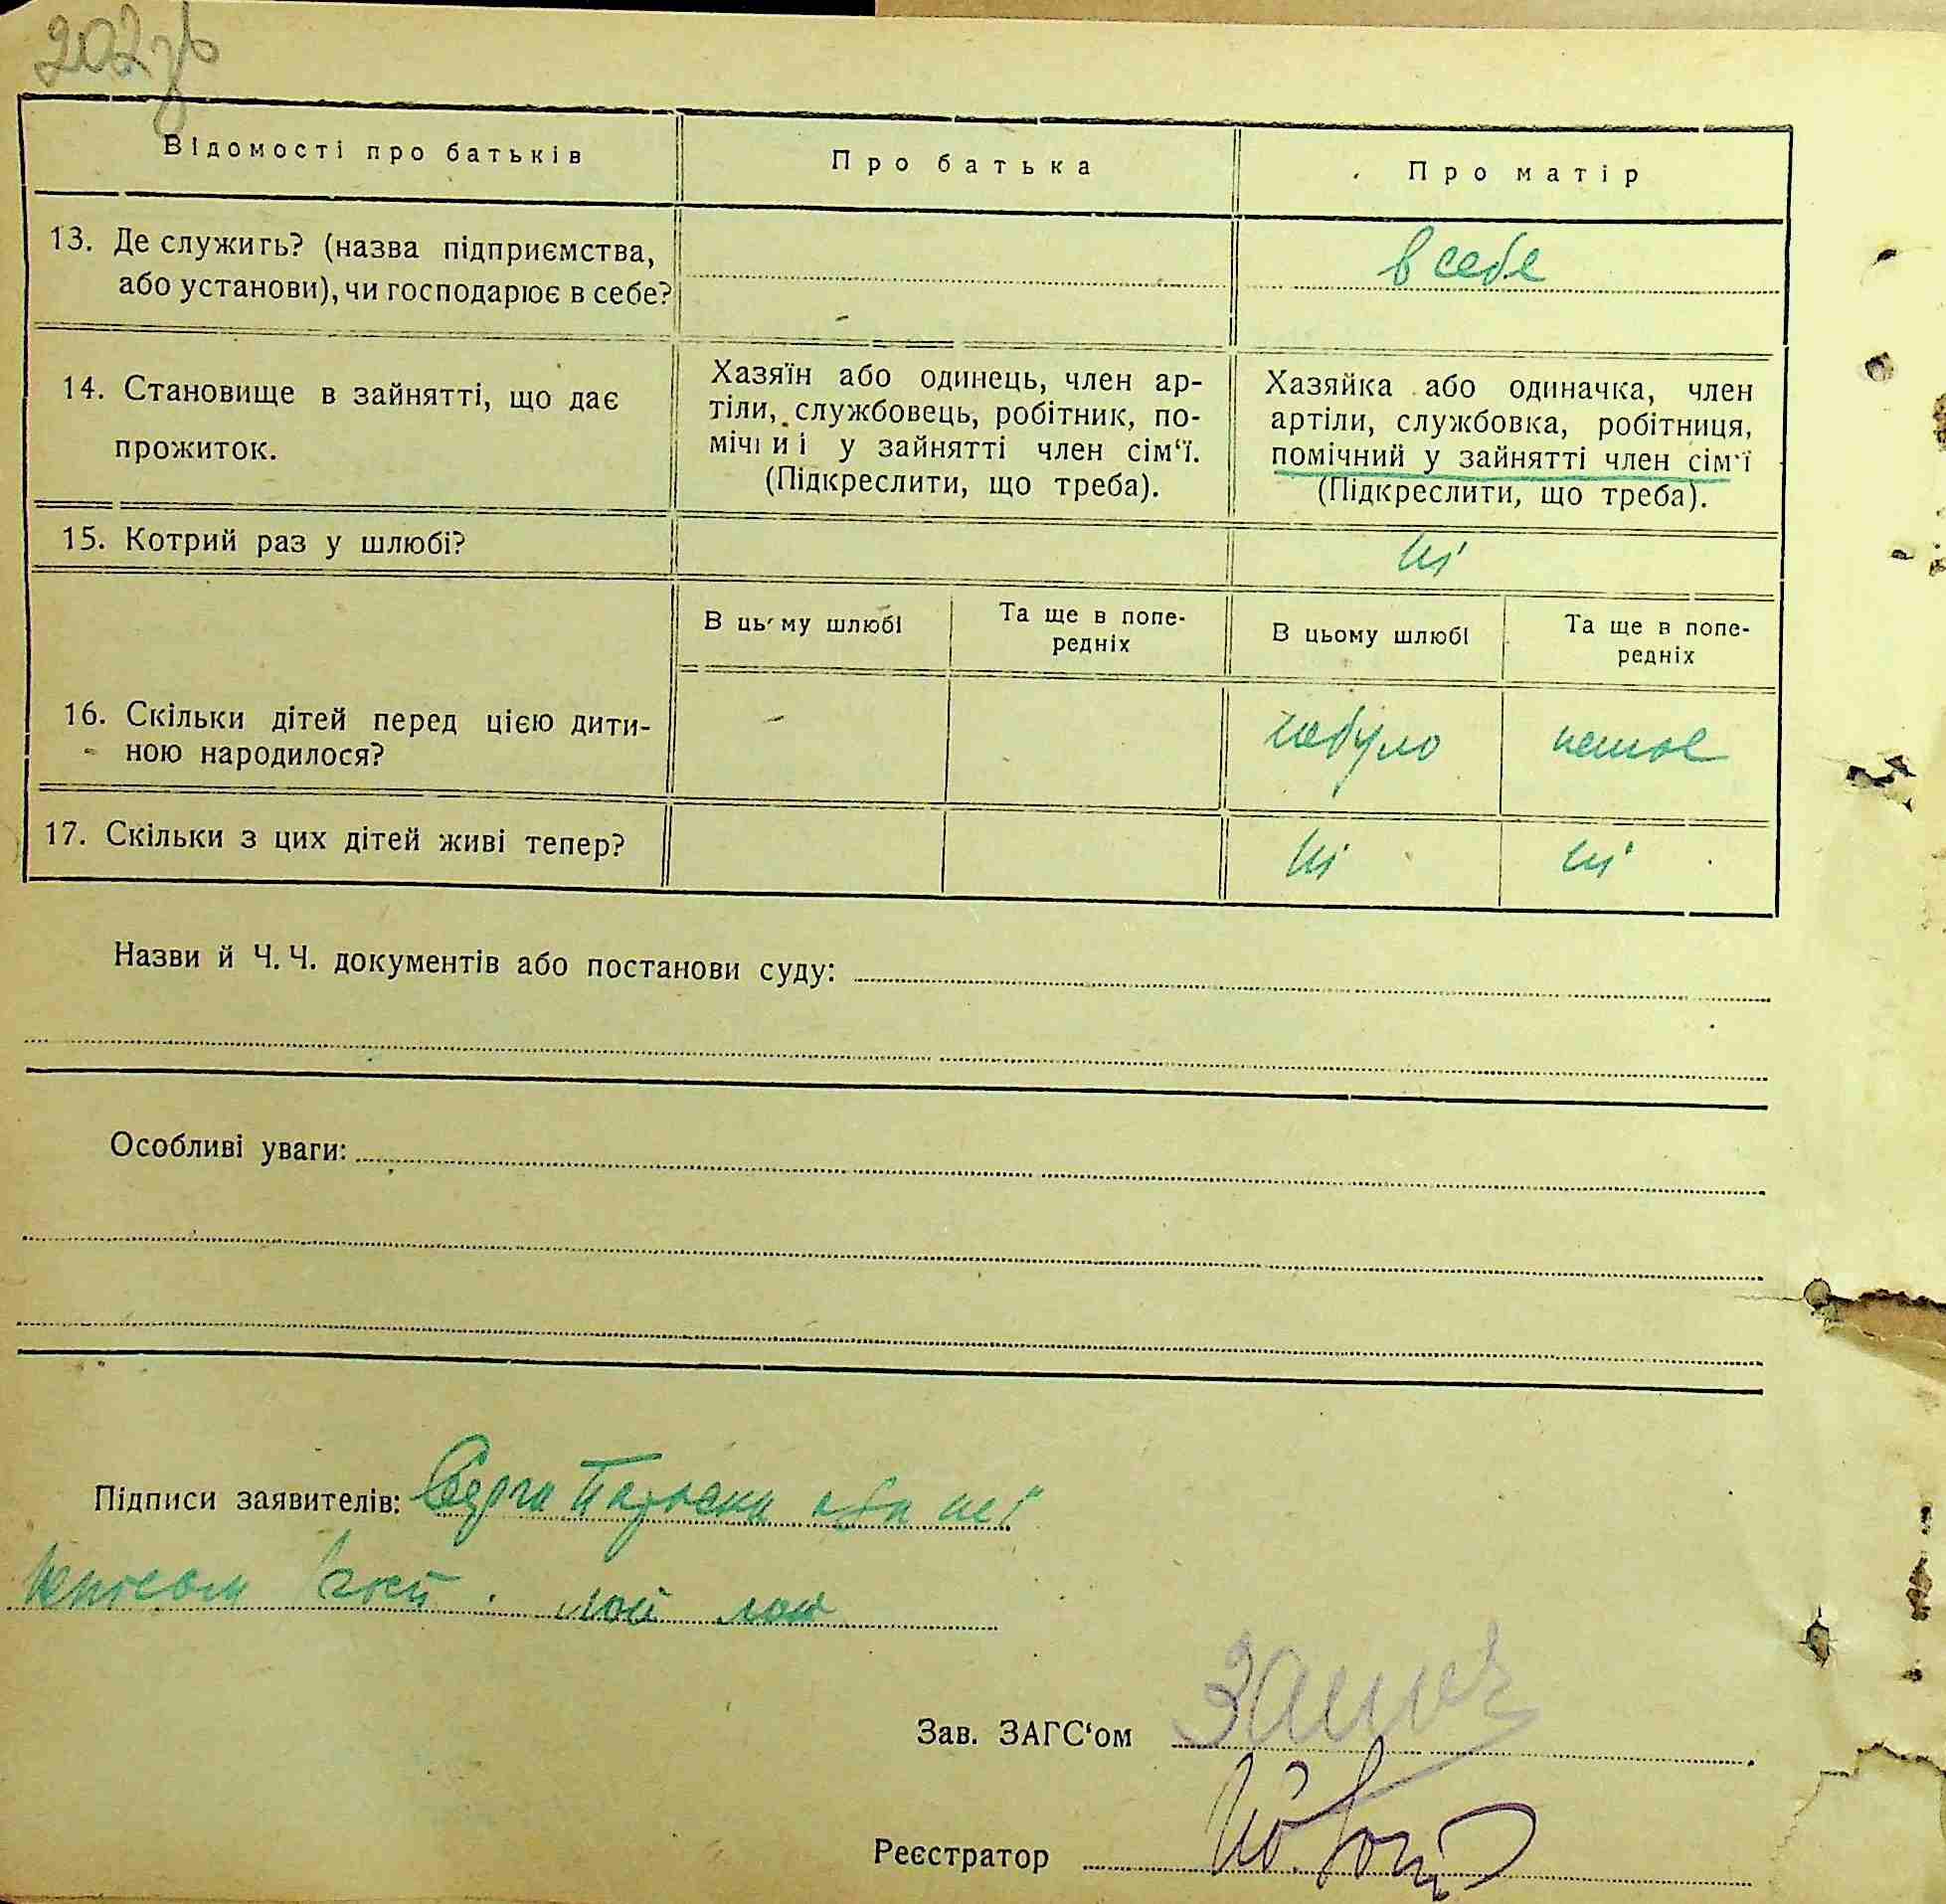 202зв
Відомості про батьків
Про батька
Про матір
13. Де служить? (назва підприємства,
або установи), чи господарює в себе?
в себе
14. Становище в зайнятті, що дає
прожиток.
Хазяїн або одинець, член ар-
тіли, службовець, робітник, по-
мічниі у зайнятті член сім‘ї.
(Підкреслити, що треба).
Хазяйка або одиначка, член
артіли, службовка, робітниця,
помічний у зайнятті член сім‘ї
(Підкреслити, що треба).
15. Котрий раз у шлюбі?
ні
В цьому шлюбі
Та ще в попе-
редніх
В цьому шлюбі
Та ще в попе-
редніх
16. Скільки дітей перед цією дити-
ною народилося?
небуло
немає
17. Скільки з цих дітей живі тепер?
ні
ні
Назви й Ч. Ч. документів або постанови суду:
Особливі уваги:
Підписи заявителів:
Зав. ЗАГС‘ом
Реєстратор